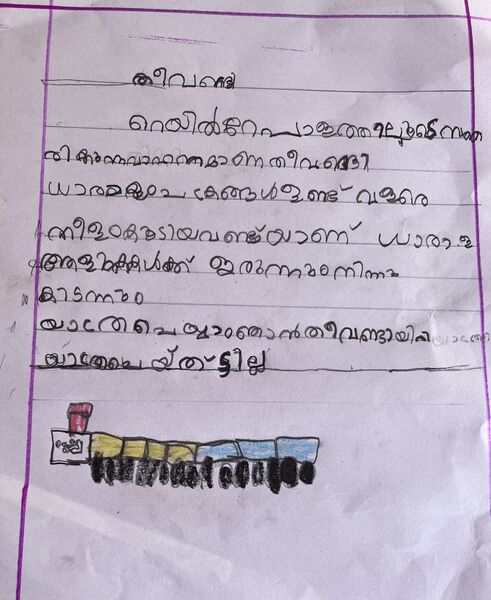 തീവണ്ടി
റെയിൽറേപാളത്തിലൂടെ സഞ്ച
രിക്കുന്നവാഹനമാണ തീവണ്ടി
ധാരാളം ചക്രങ്ങൾഉണ്ട് വളരെ
നീളംകൂടിയവണ്ടിയാണ് ധാരാള
ആളുകൾക്ക് ഇരുന്നുംനിന്നും
കിടന്നും
യാത്രചെയ്യാംഞാൻതീവണ്ടിയിൽ
യാത്രചെയ്ത്ട്ടില്ല